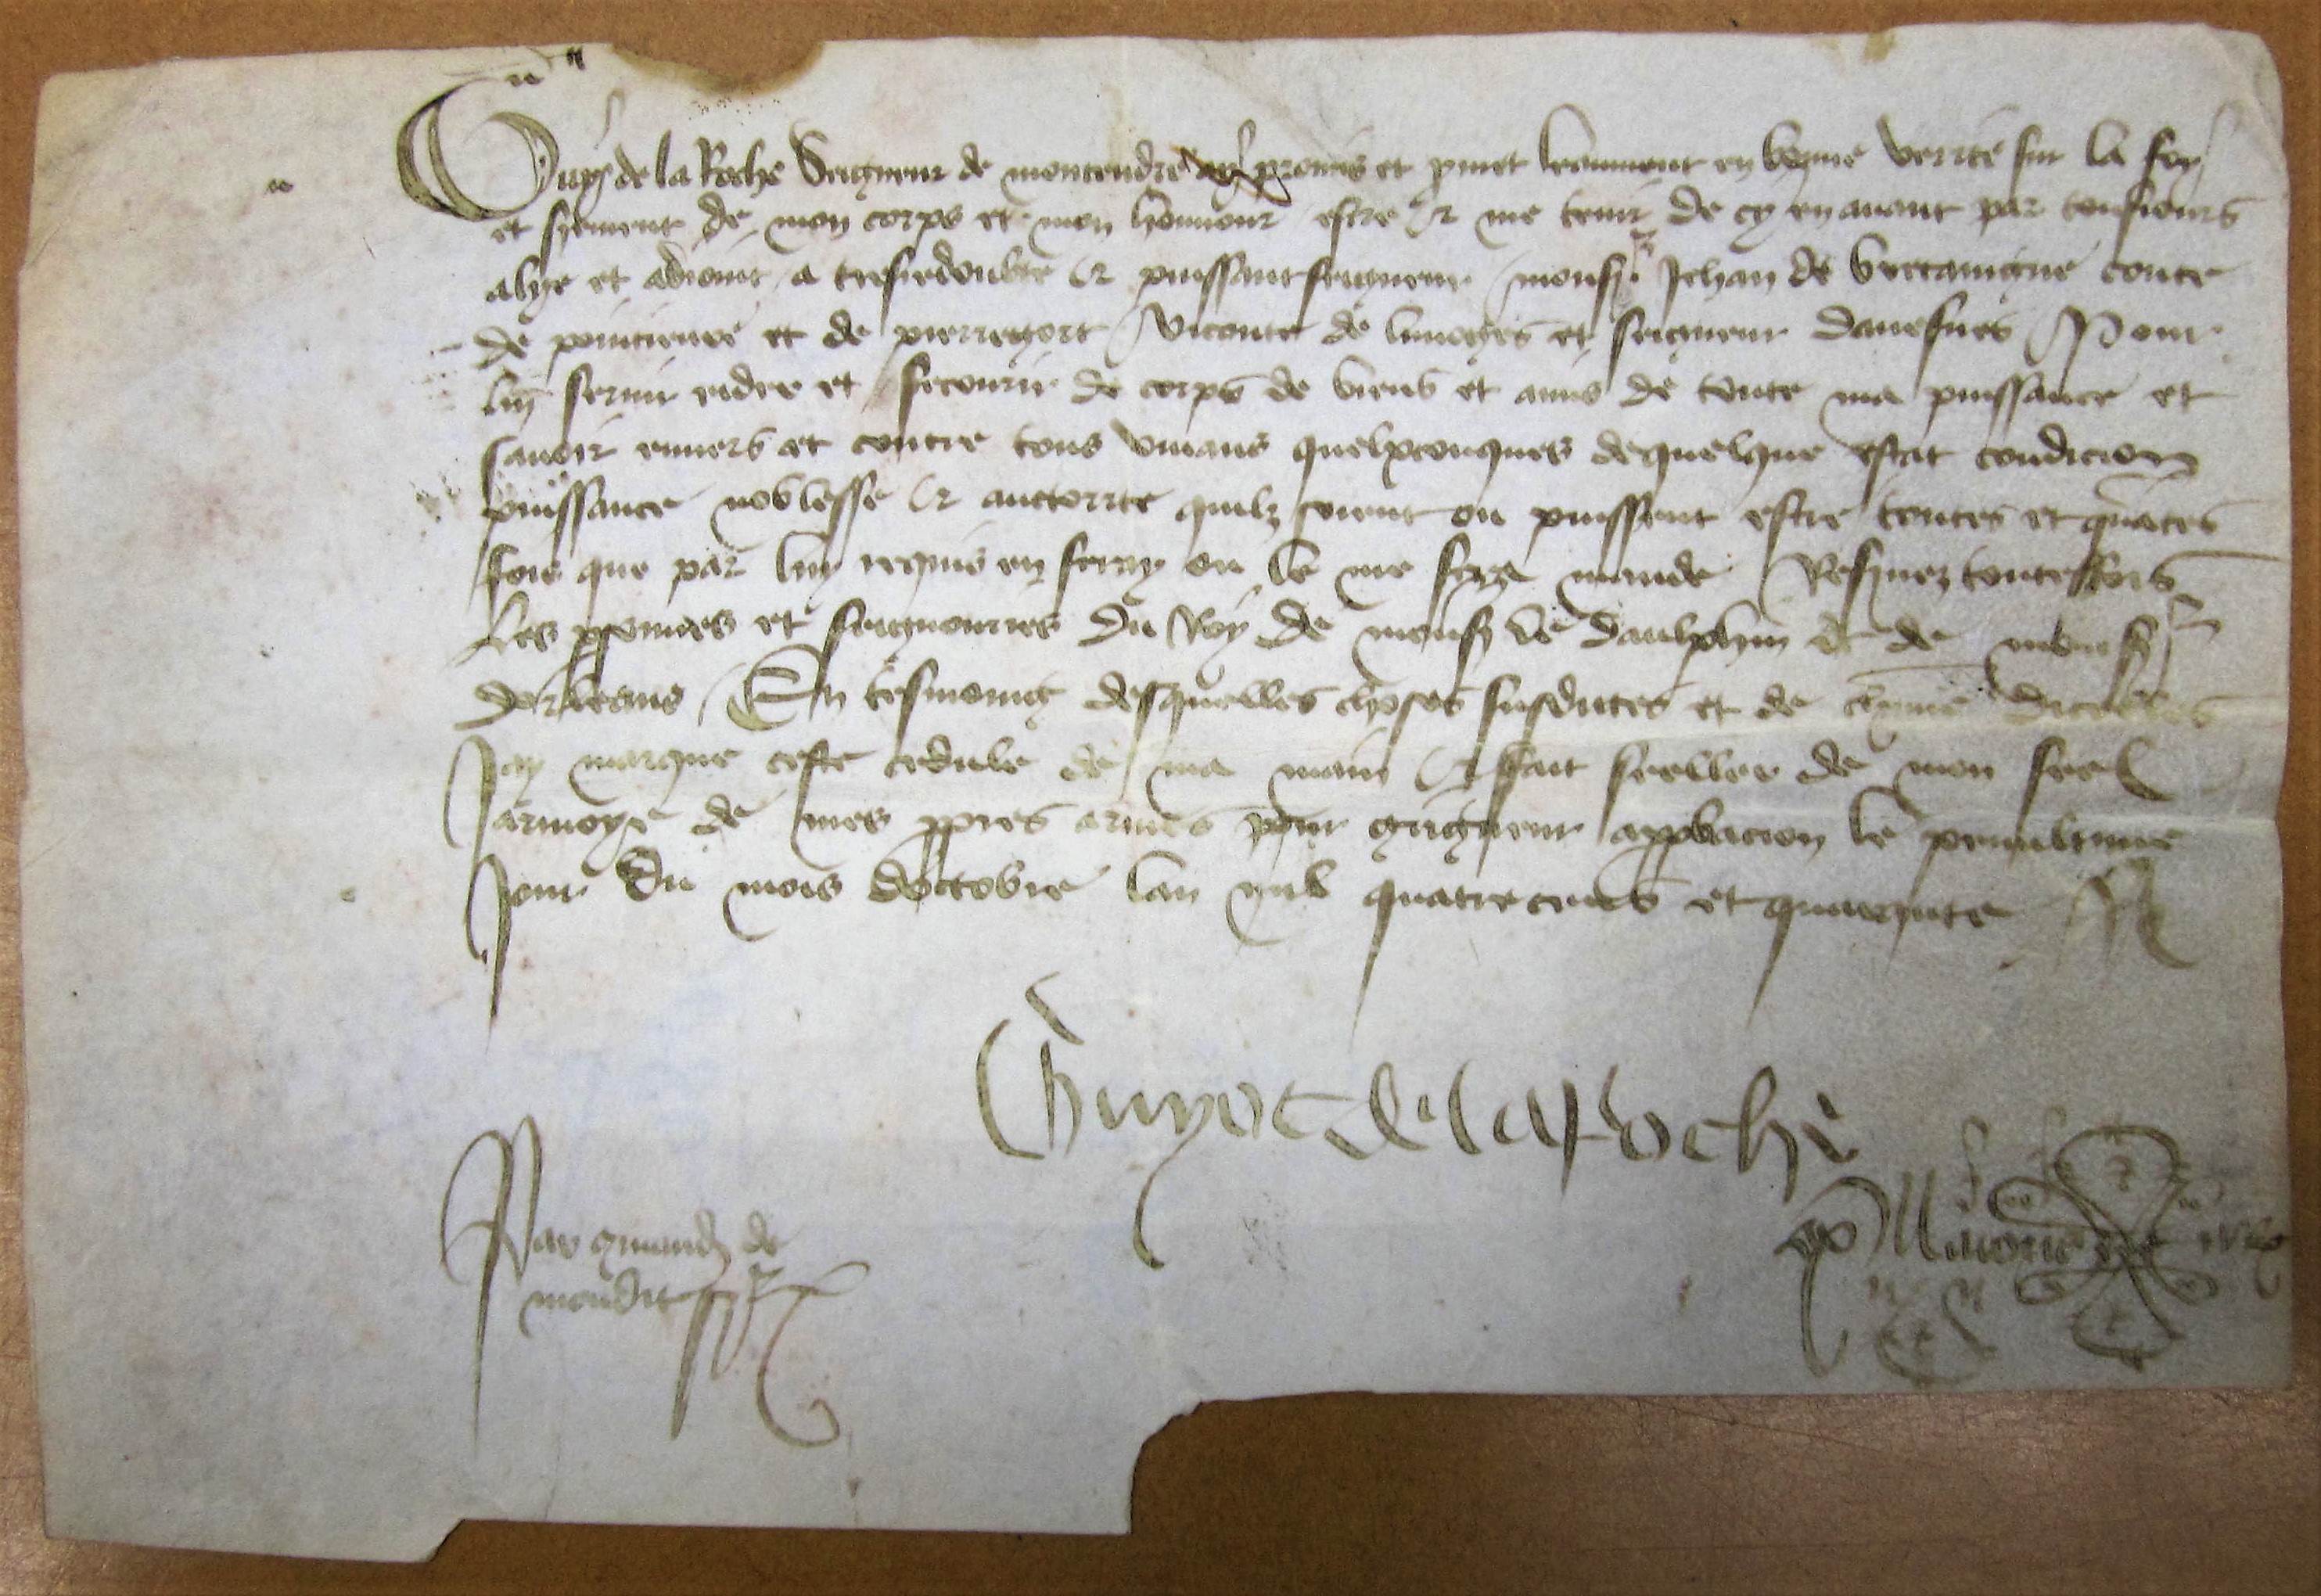 Guy de la Roche Seigneur de montendre promis et pmet leaument en bonne verité sur la foy
et serment de mon corps et mon honnour estre et me tenir de cy en auant par tousiours
alye et adioint a tresredoubte et puissant seigneur monsr Jehan de bretaingne conte
de pointieure et de pierregort viconte de limoges et seigneur dauesnes Pour
luy seruir eidre et secourir de corps de biens et amis de toute ma puissance et
sauoir enuers et contre tous viuans quelxconques de quelque estat condicion
puissance noblesse et auctorite quilz soient ou puissent estre toutes et quātes
fois que par luy requis en seray ou le me fera mande Reseruez touteffois
les psonnes et seigneuries du Roy de monsr le daulphin et de monsr
dorleans En tesmoing desquelles choses susdites et de chūne dicelles
Jay marque ceste cedule de ma main et fait seeller de mon seel
armoye de mes ppres armes pour grigneur appbacion le penultime
Jour du mois doctobre lan mil quatre cens et quarante
Guyot de la Roche
Par cmand de
mondit sr